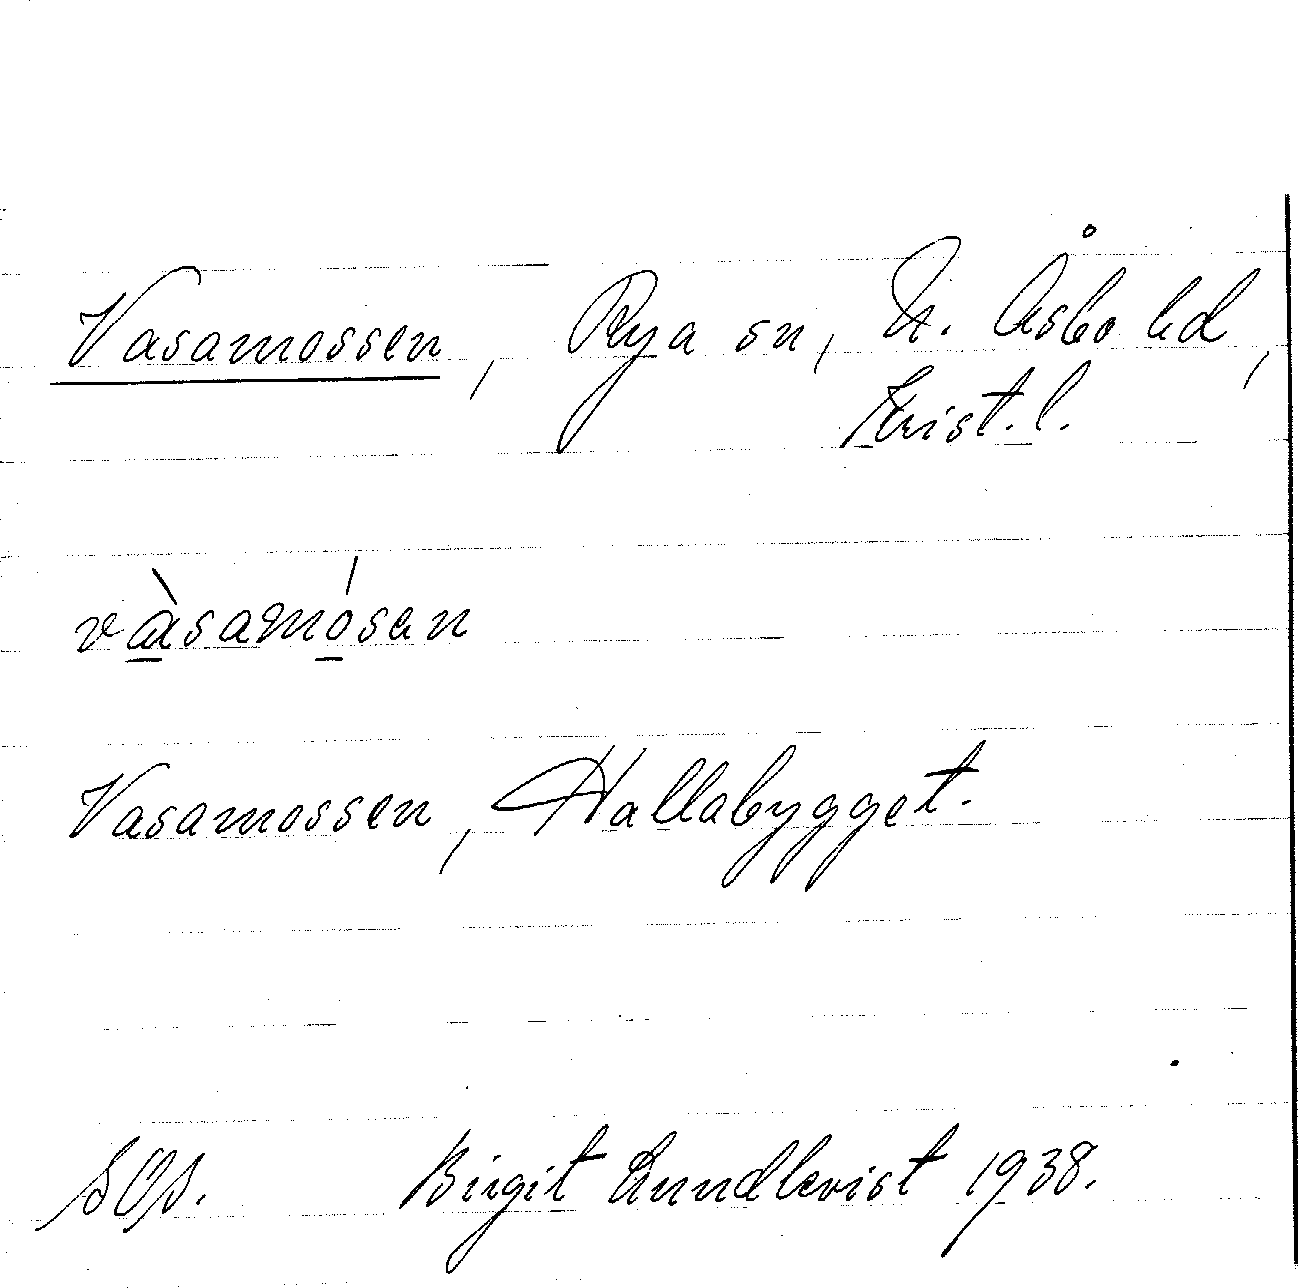 Vasamossen, Rya sn, N. Åsbo hd,
Krist. l.
vàsamósan
Vasamossen, Hallabygget.
Birgit Lundkvist 1938.